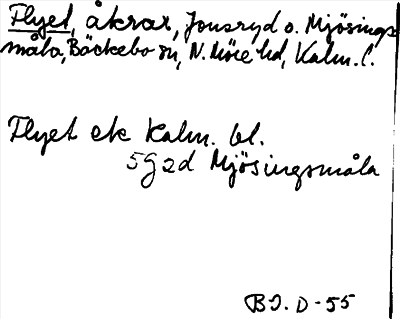 Flyet, åkrar, Jonsryd o. Mjösings
måla, Bäckebo sn, N. Möre hd, Kalm. l.
Flyet ek Kalm. bl.
5G2d Mjösingsmåla
BJ. D-55